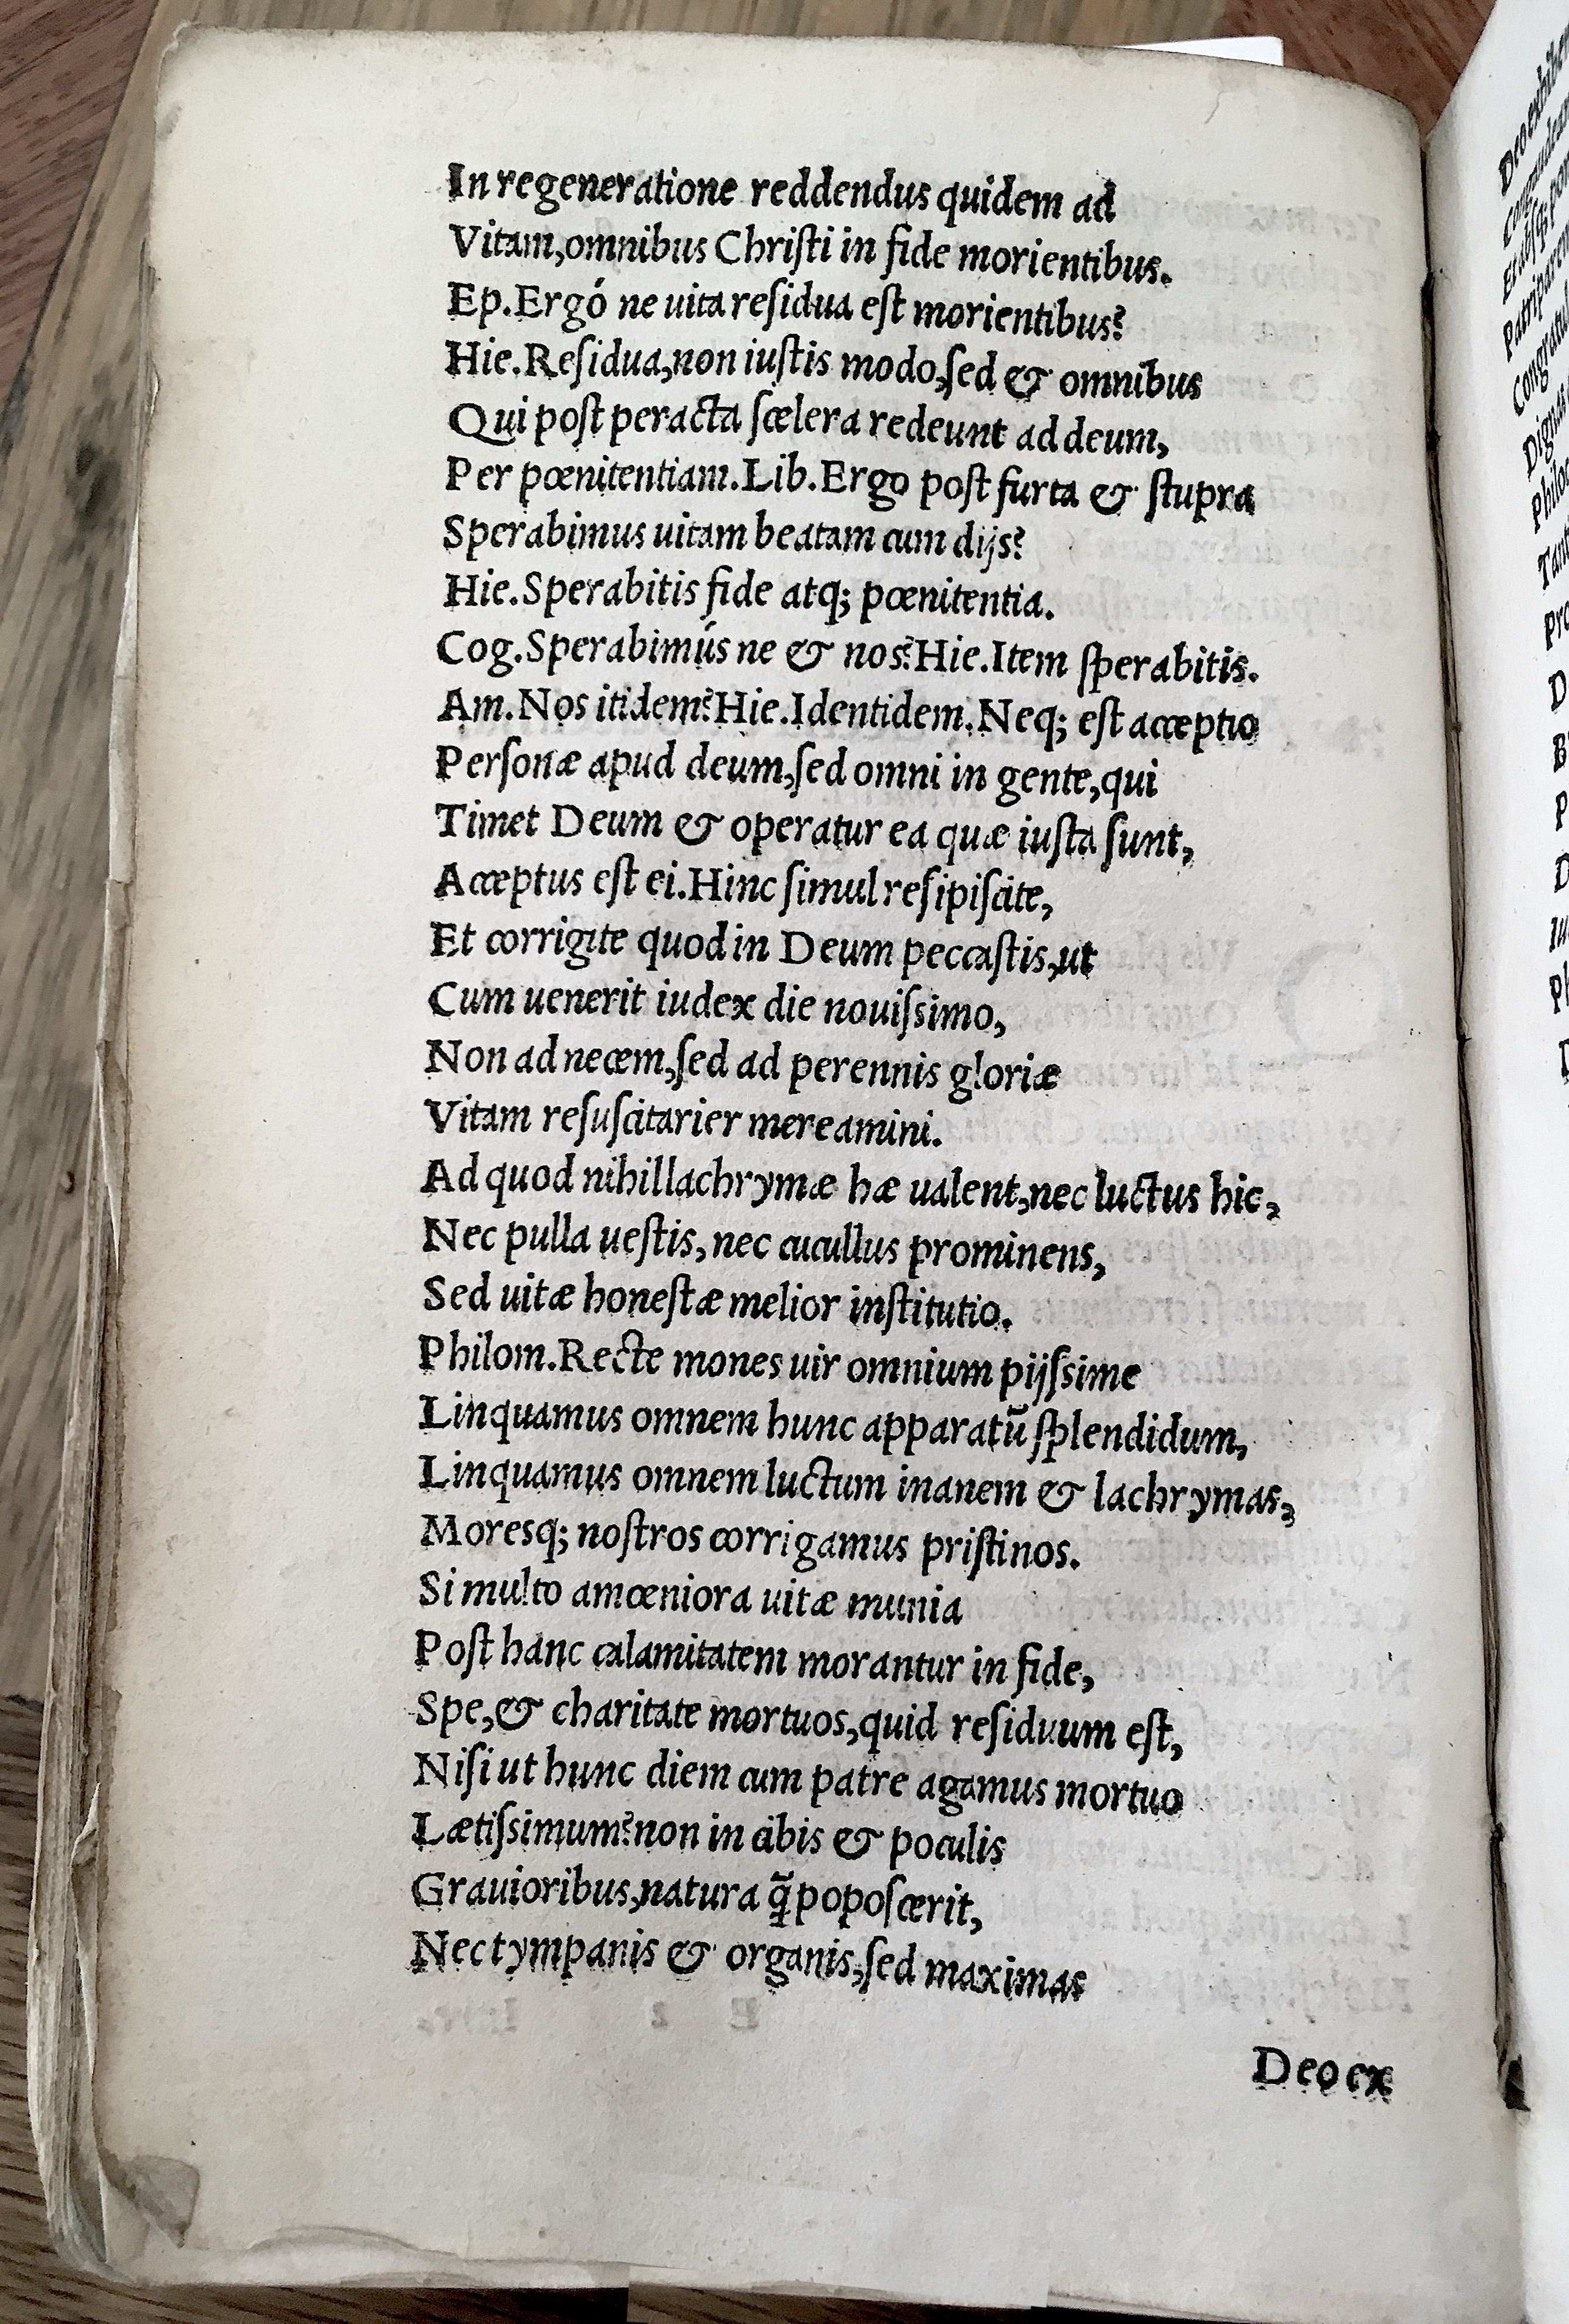 In regeneratione reddendus quidem ad
Vitam,omnibus Chriſti in fide morientibus.
Ep.Ergó ne uita reſidua eſt morientibus?
Hie.Reſidua,non iuſtis modo,ſed & omnibus
Qui poſt peracta ſcelera redeunt ad deum,
Per pœnitentiam.Lib.Ergo poſt furta & ſtupra
Sperabimus uitam beatam cum dijs?
Hie.Sperabitis fide atq; pœnitentia.
Cog.Sperabimús ne & nos?Hie.Item ſperabitis.
Am.Nos itidem?Hie.Identidem.Neq; eſt acceptio
Perſonæ apud deum,ſed omni in gente,qui
Timet Deum & operatur ea quæ iuſta ſunt,
Acceptus eſt ei.Hinc ſimul reſipiſcite,
Et corrigite quod in Deum peccaſtis,ut
Cum uenerit iudex die nouiſsimo,
Non ad necem,ſed ad perennis gloriæ
Vitam reſuſcitarier mereamini.
Ad quod nihil lachrymæ hæ ualent,nec luctus hic,
Nec pulla ueſtis, nec cucullus prominens,
Sed uitæ honeſtæ melior inſtitutio.
Philom.Recte mones uir omnium pijſsime
Linquamus omnem hunc apparatū ſplendidum,
Linquamus omnem luctum inanem & lachrymas,
Moresq; noſtros corrigamus priſtinos.
Si multo amœniora uitæ munia
Poſt hanc calamitatem morantur in fide,
Spe,& charitate mortuos,quid reſiduum eſt,
Niſi ut hunc diem cum patre agamus mortuo
Lætiſsimum?non in cibis & poculis
Grauioribus,natura q̃ popoſcerit,
Nec tympanis & organis,ſed maximas
Deo ex